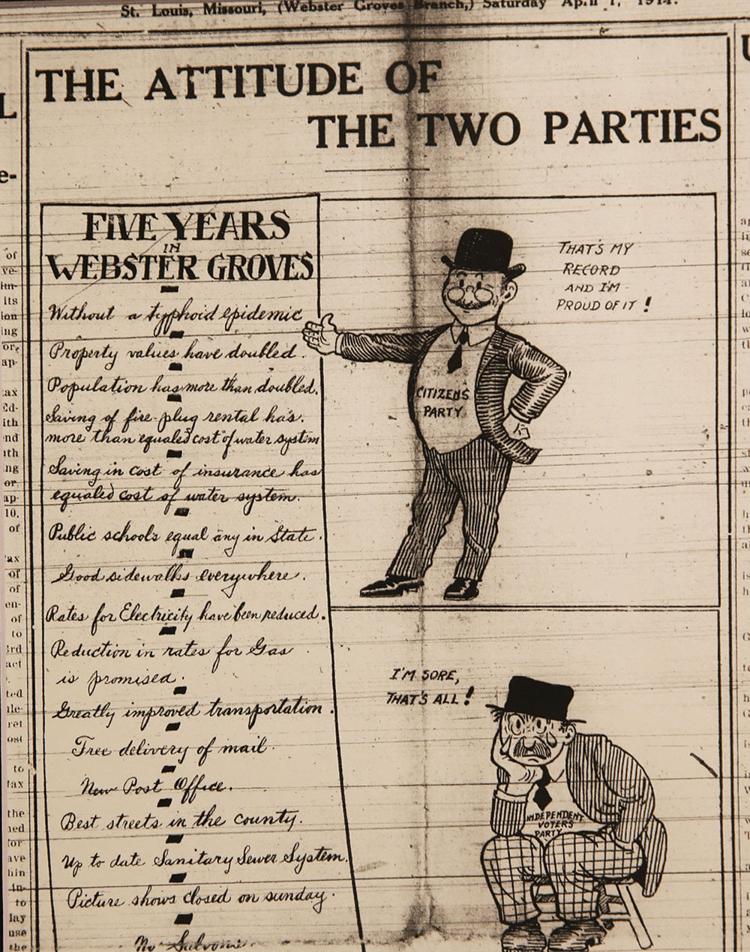 St. Louis, Missouri, (Webster Groves Branch,) Saturday April 1, 1914.
THE ATTITUDE OF
THE TWO PARTIES
FIVE YEARS
IN
WEBSTER GROVES
Without a typhoid epidemic
Property values have doubled.
Population has more than doubled.
Saving of fire-plug rental has
more than equaled cost of water system
Saving in cost of insurance has
equaled cost of water system.
Public schools equal any in State.
Good sidewalks everywhere.
Rates for Electricity have been reduced.
Reduction in rates for Gas
is promised.
Greatly improved transportation.
Free delivery of mail.
New Post Office.
Best streets in the county.
Up to date Sanitary Sewer System.
Picture shows closed on sunday.
No Saloons.
THAT'S MY
RECORD
AND I'M
PROUD OF IT!
CITIZENS
PARTY
I'M SORE,
THAT'S ALL!
INDEPENDENT
VOTERS
PARTY